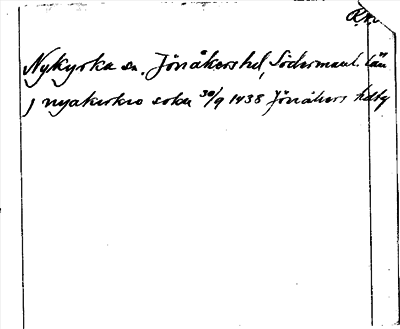 R.A.
Nykyrka sn. Jönåkers hd, Södermanl. län
j nyakirkio sokn 30/9 1438 Jönåkers hdby